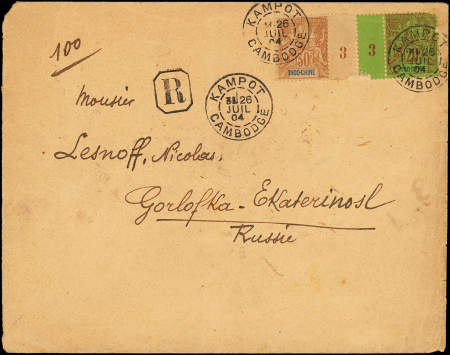 100
KAMPOT
3E 26
JUIL
04
CAMBODGE
INDO-CHINE
3 3
KAMPOT
26
JUIL
04
CAMBODGE
R
KAMPOT
3E 26
JUIL
04
CAMBODGE
Monsier
Lesnoff, Nicolas.
Gorlofka-Ekaterinosl
Russie